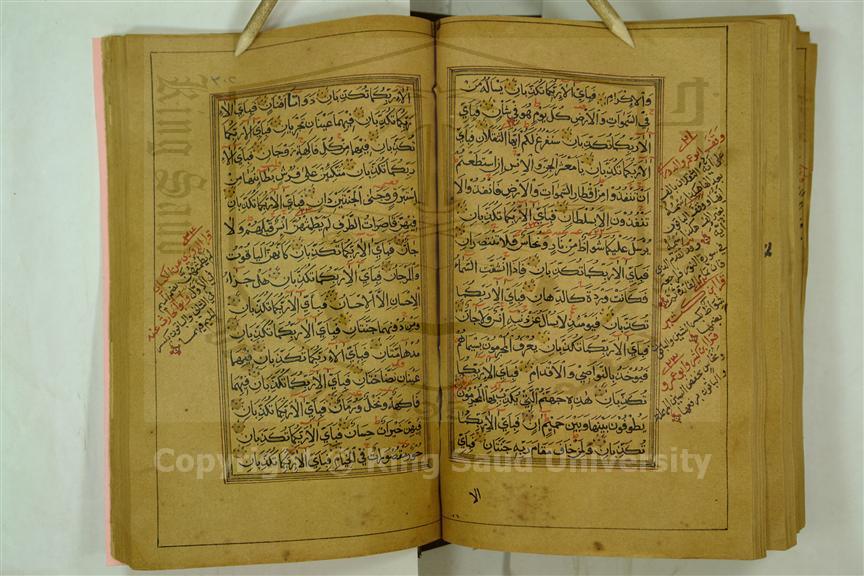 والاكرام فباي الاء ربكما تكذبان يساله من
في السموات والارض كل يوم هو في شان فباي
الاء ربكما تكذبان سنفرغ لكم ايها الثقلان فباي
الاء ربكما تكذبان يا معشر الجن والانس ان استطعتم
ان تنفذوا من اقطار السموات والارض فانفذوا لا
تنفذون الا بسلطان فباي الاء ربكما تكذبان
يرسل عليكما شواظ من نار ونحاس فلا تنتصران
فباي الاء ربكما تكذبان فاذا انشقت السماء
فكانت وردة كالدهان فباي الاء ربكما
تكذبان فيومئذ لا يسال عن ذنبه انس ولا جان
فباي الاء ربكما تكذبان يعرف المجرمون بسيماهم
فيوخذ بالنواصي والاقدام فباي الاء ربكما
تكذبان هذه جهنم التي يكذب بها المجرمون
يطوفون بينها وبين حميم ان فباي الاء ربكما
تكذبان ولمن خاف مقام ربه جنتان فباي
الا
٣٠٢
الاء ربكما تكذبان ذواتا افنان فباي الاء
ربكما تكذبان فيهما عينان تجريان فباي الاء ربكما
تكذبان فيهما من كل فاكهة زوجان فباي الاء
ربكما تكذبان متكئين على فرش بطائنها من
استبرق وجنى الجنتين دان فباي الاء ربكما تكذبان
فيهن قاصرات الطرف لم يطمثهن انس قبلهم ولا
جان فباي الاء ربكما تكذبان كانهن الياقوت
والمرجان فباي الاء ربكما تكذبان هل جزاء
الاحسان الا الاحسان فباي الاء ربكما تكذبان
ومن دونهما جنتان فباي الاء ربكما تكذبان
مدهامتان فباي الاء ربكما تكذبان فيهما
عينان نضاختان فباي الاء ربكما تكذبان فيهما
فاكهة ونخل ورمان فباي الاء ربكما تكذبان
فيهن خيرات حسان فباي الاء ربكما تكذبان
حور مقصورات في الخيام فباي الاء ربكما تكذبان
Copyright © King Saud University